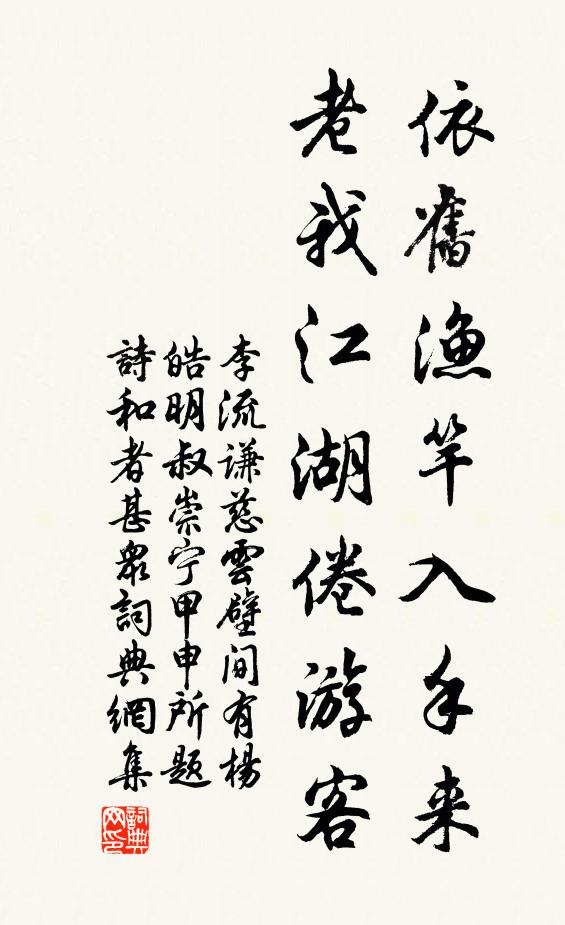 依舊漁竿入手来
老我江湖倦游客
李流谦慈雲壁间有楊
皓明叔崇宁甲申所题
詩和者甚衆詞典網集
詞典网印